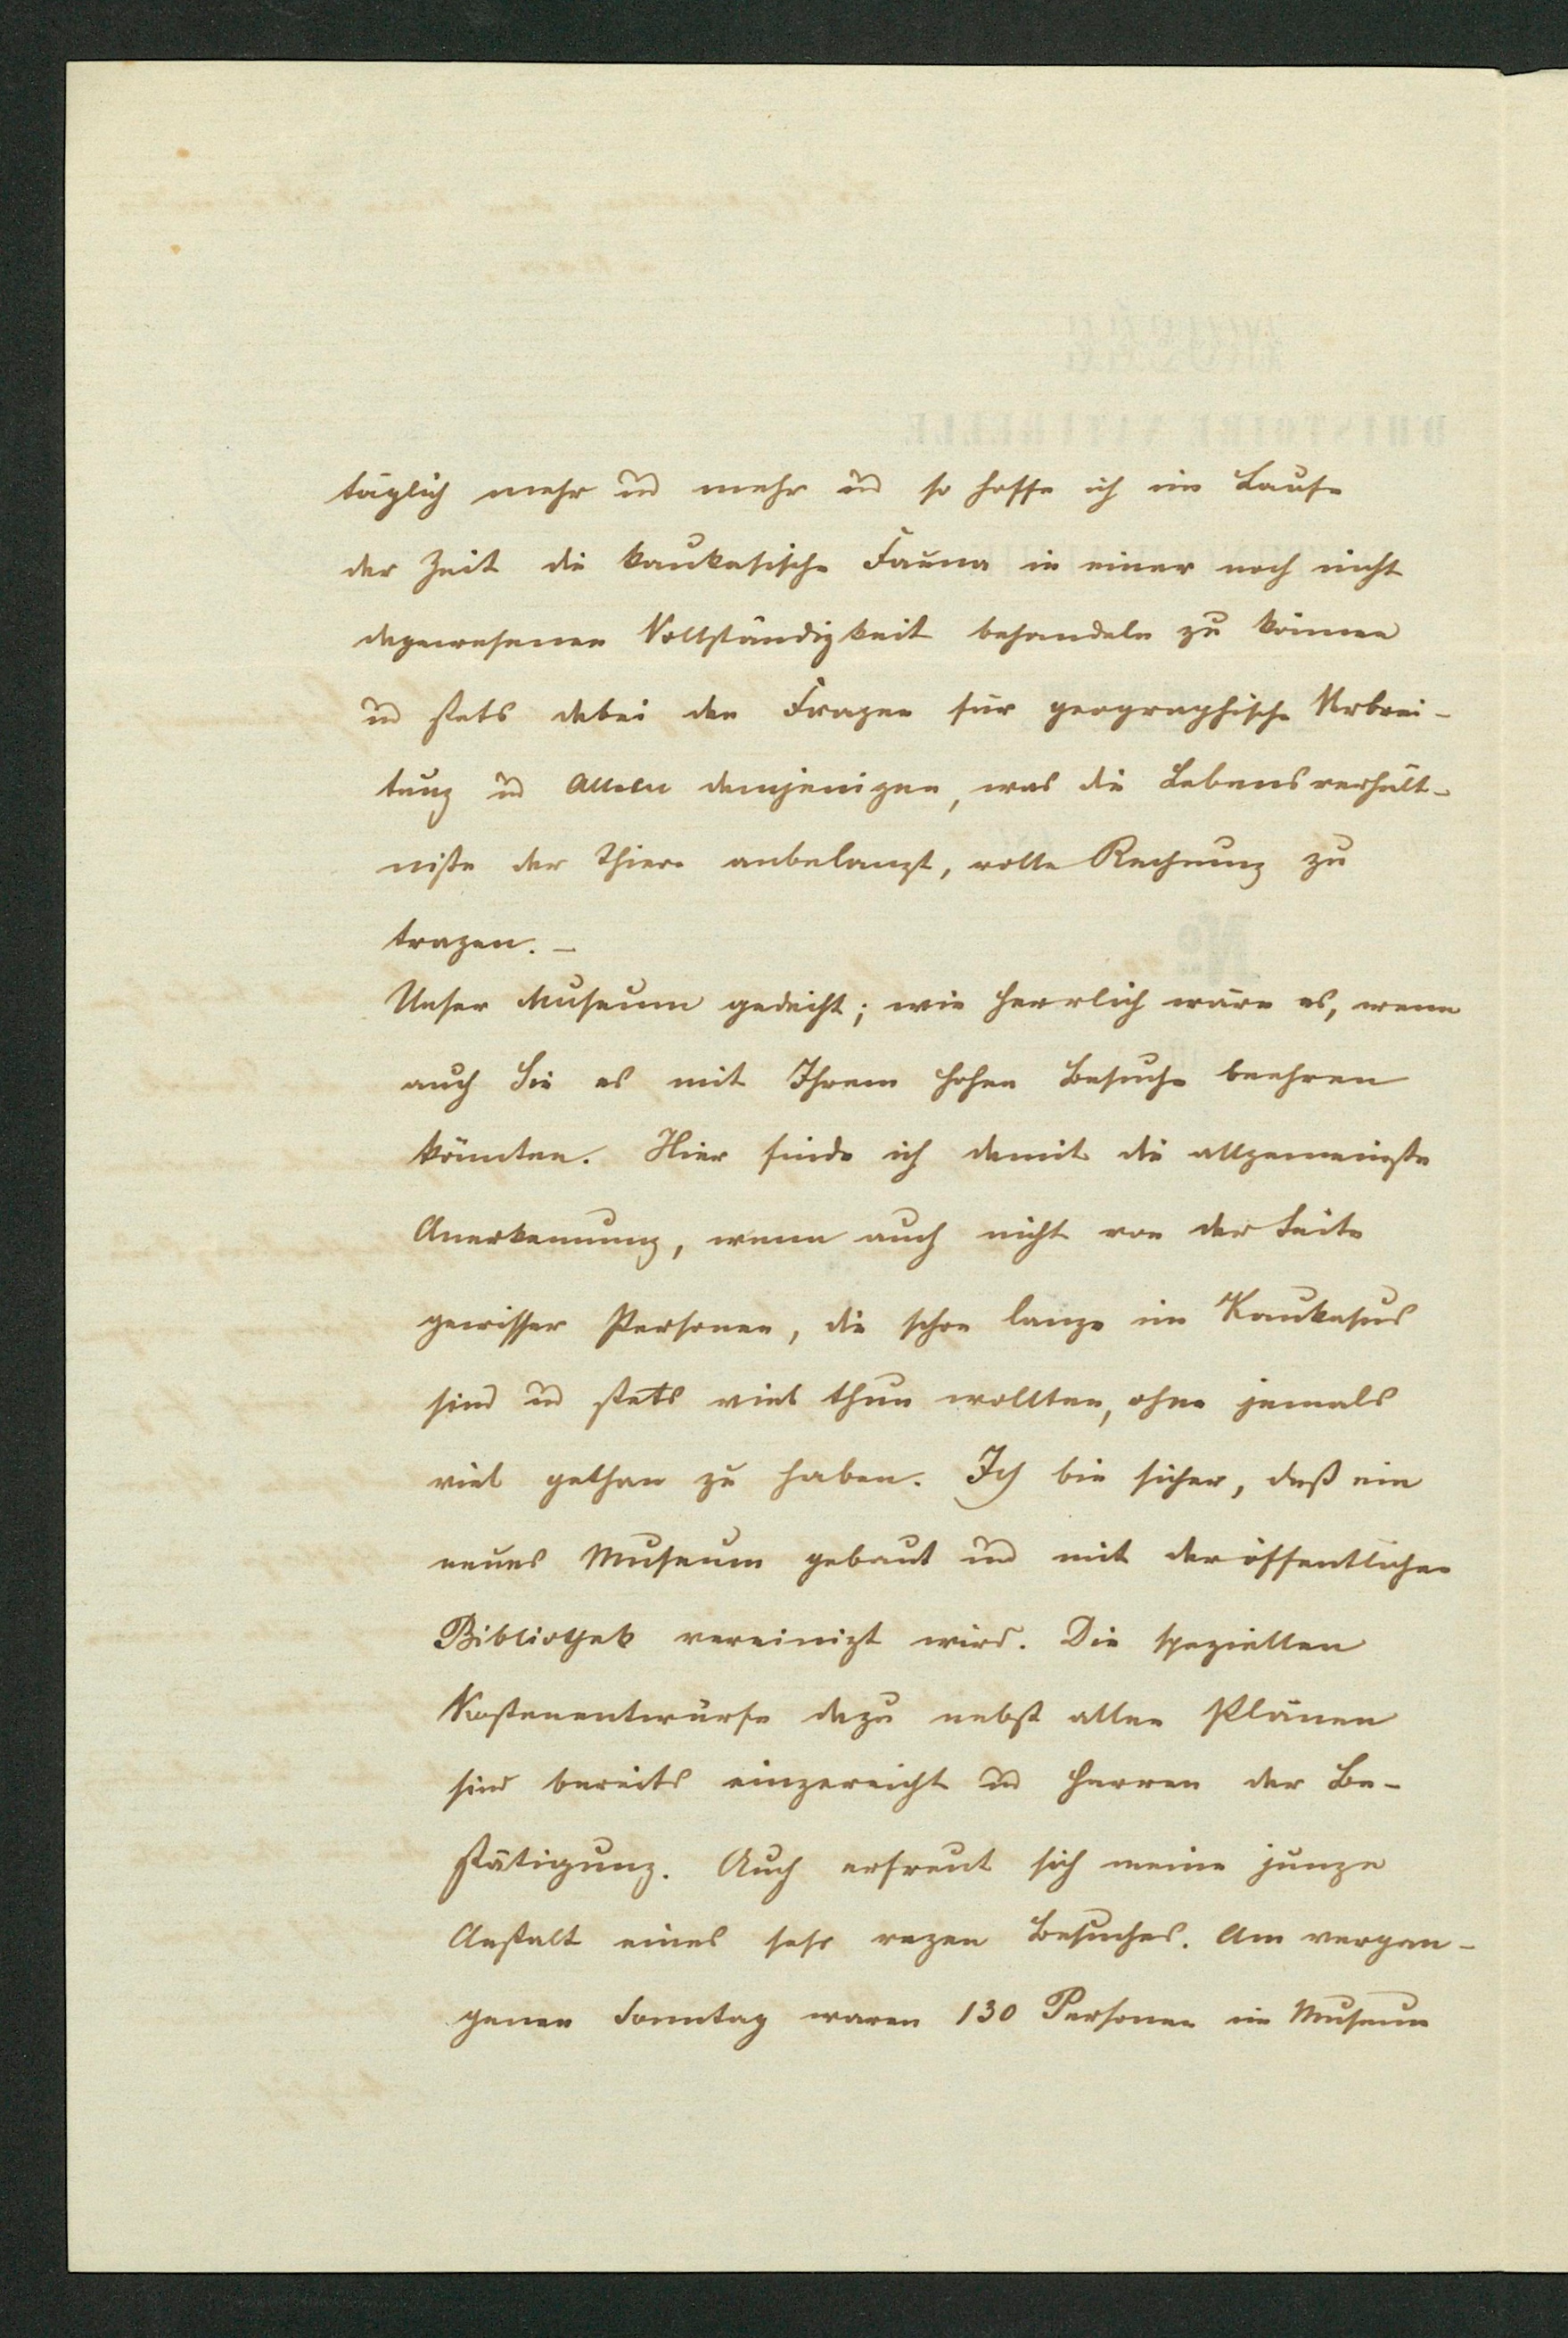 täglich mehr u mehr u so hoffe ich im Laufe
der Zeit die kaukasische Fauna in einer noch nicht
dagewesenen Vollständigkeit behandeln zu können
u stets dabei den Fragen für geographische Verbrei-
tung u Allem demjenigen, was die Lebensverhält-
niße der Thiere anbelangt, volle Rechnung zu
tragen. –
Unser Museum gedeiht; wie herrlich wäre es, wenn
auch Sie es mit Ihrem hohen Besuche beehren
könnten. Hier finde ich damit die allgemeinste
Anerkennung, wenn auch nicht von der Seite
gewisser Personen, die schon lange im Kaukasus
sind u stets viel thun wollten, ohne jemals
viel gethan zu haben. Ich bin sicher, daß ein
neues Museum gebaut und mit der öffentlichen
Bibliothek vereinigt wird. Die speziellen
Kostenentwürfe dazu nebst allen Plänen
sind bereits eingereicht u harren der Be-
stätigung. Auch erfreut sich meine junge
Anstalt eines sehr regen Besuches. Am vergan-
genen Sonntag waren 130 Personen im Museum